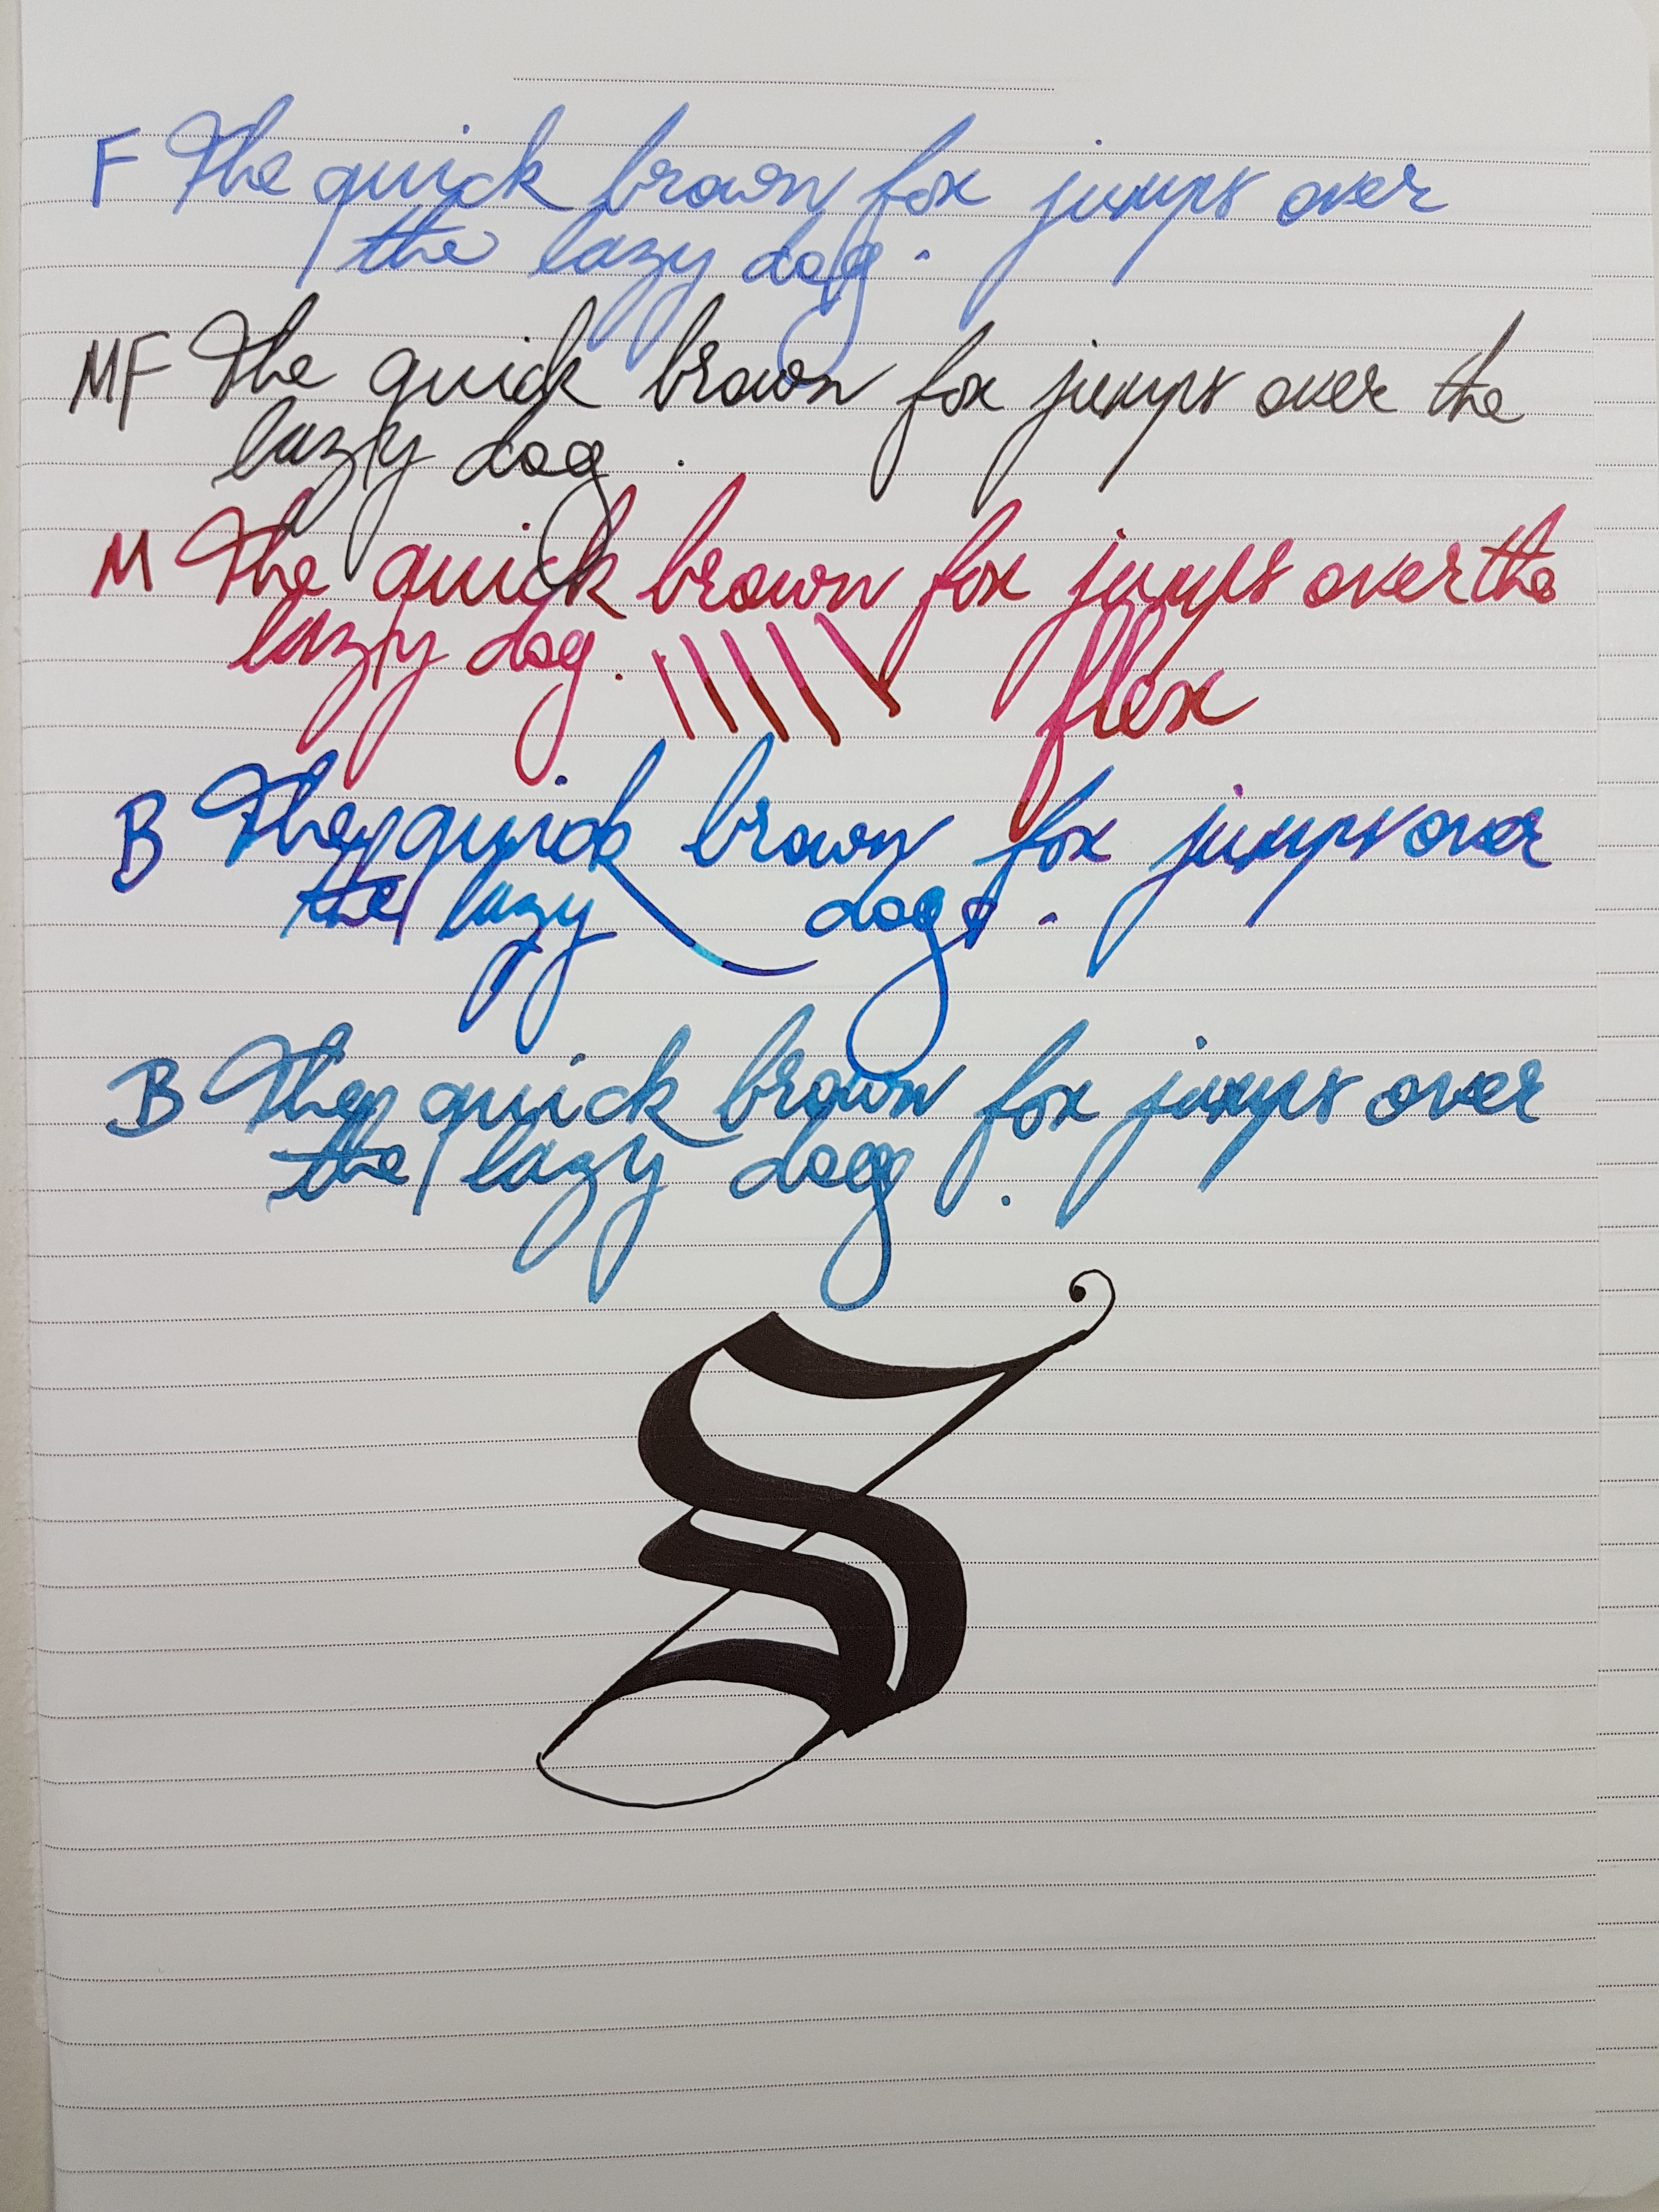 F The quick brown fox jumps over
the lazy dog.
MF The quick brown fox jumps over the
lazy dog.
M The quick brown fox jumps over the
lazy dog. flex
B The quick brown fox jumps over
the lazy dog.
B The quick brown fox jumps over
the lazy dog.
S